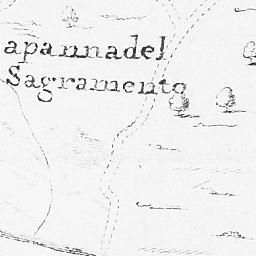 apannadel
Sagramento